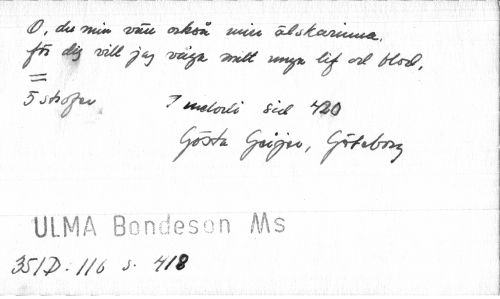 O, du min vän också min älskarinna,
för dig vill jag våga mitt unga lif och blod,
=
5 strofer 1 melodi sid 420
Gösta Geijer, Göteborg
ULMA Bondeson Ms
351D:116 s. 418